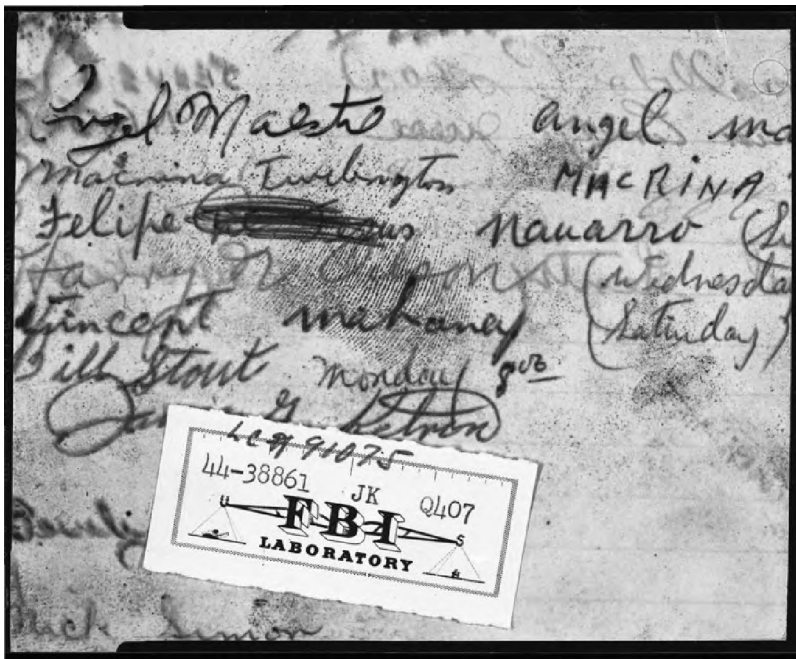 Angel Maestre angel ma
Macrina Turlington MACRINA
Felipe Jesus Navarro (Su
Harry R. Wilson (Wednesda
Vincent Mehaney (Saturday)
Bill Stout Monday 8 00
G. Ketron
LC# 91075
44-38861 JK Q407
FBI
LABORATORY
Simon